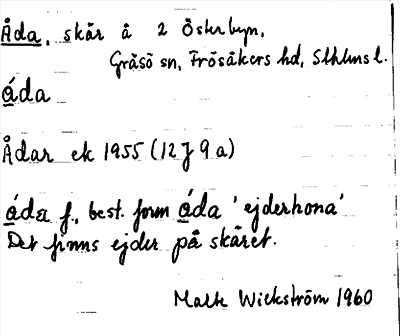 Åda, skär å 2 Österbyn,
Gräsö sn, Frösåkers hd, Sthlms l.
áda
Ådar ek 1955 (12J9a)
ádɛ f., best. form áda 'ejderhona'
Det finns ejder på skäret.
Wickström 1960